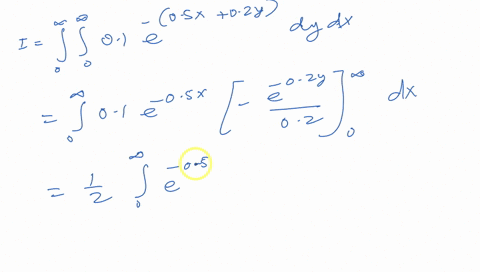 I = ∫₀^∞ ∫₀^∞ 0.1 e^-(0.5x + 0.2y) dy dx
= ∫₀^∞ 0.1 e^-0.5x [- e^-0.2y / 0.2]₀^∞ dx
= 1/2 ∫₀^∞ e^-0.5